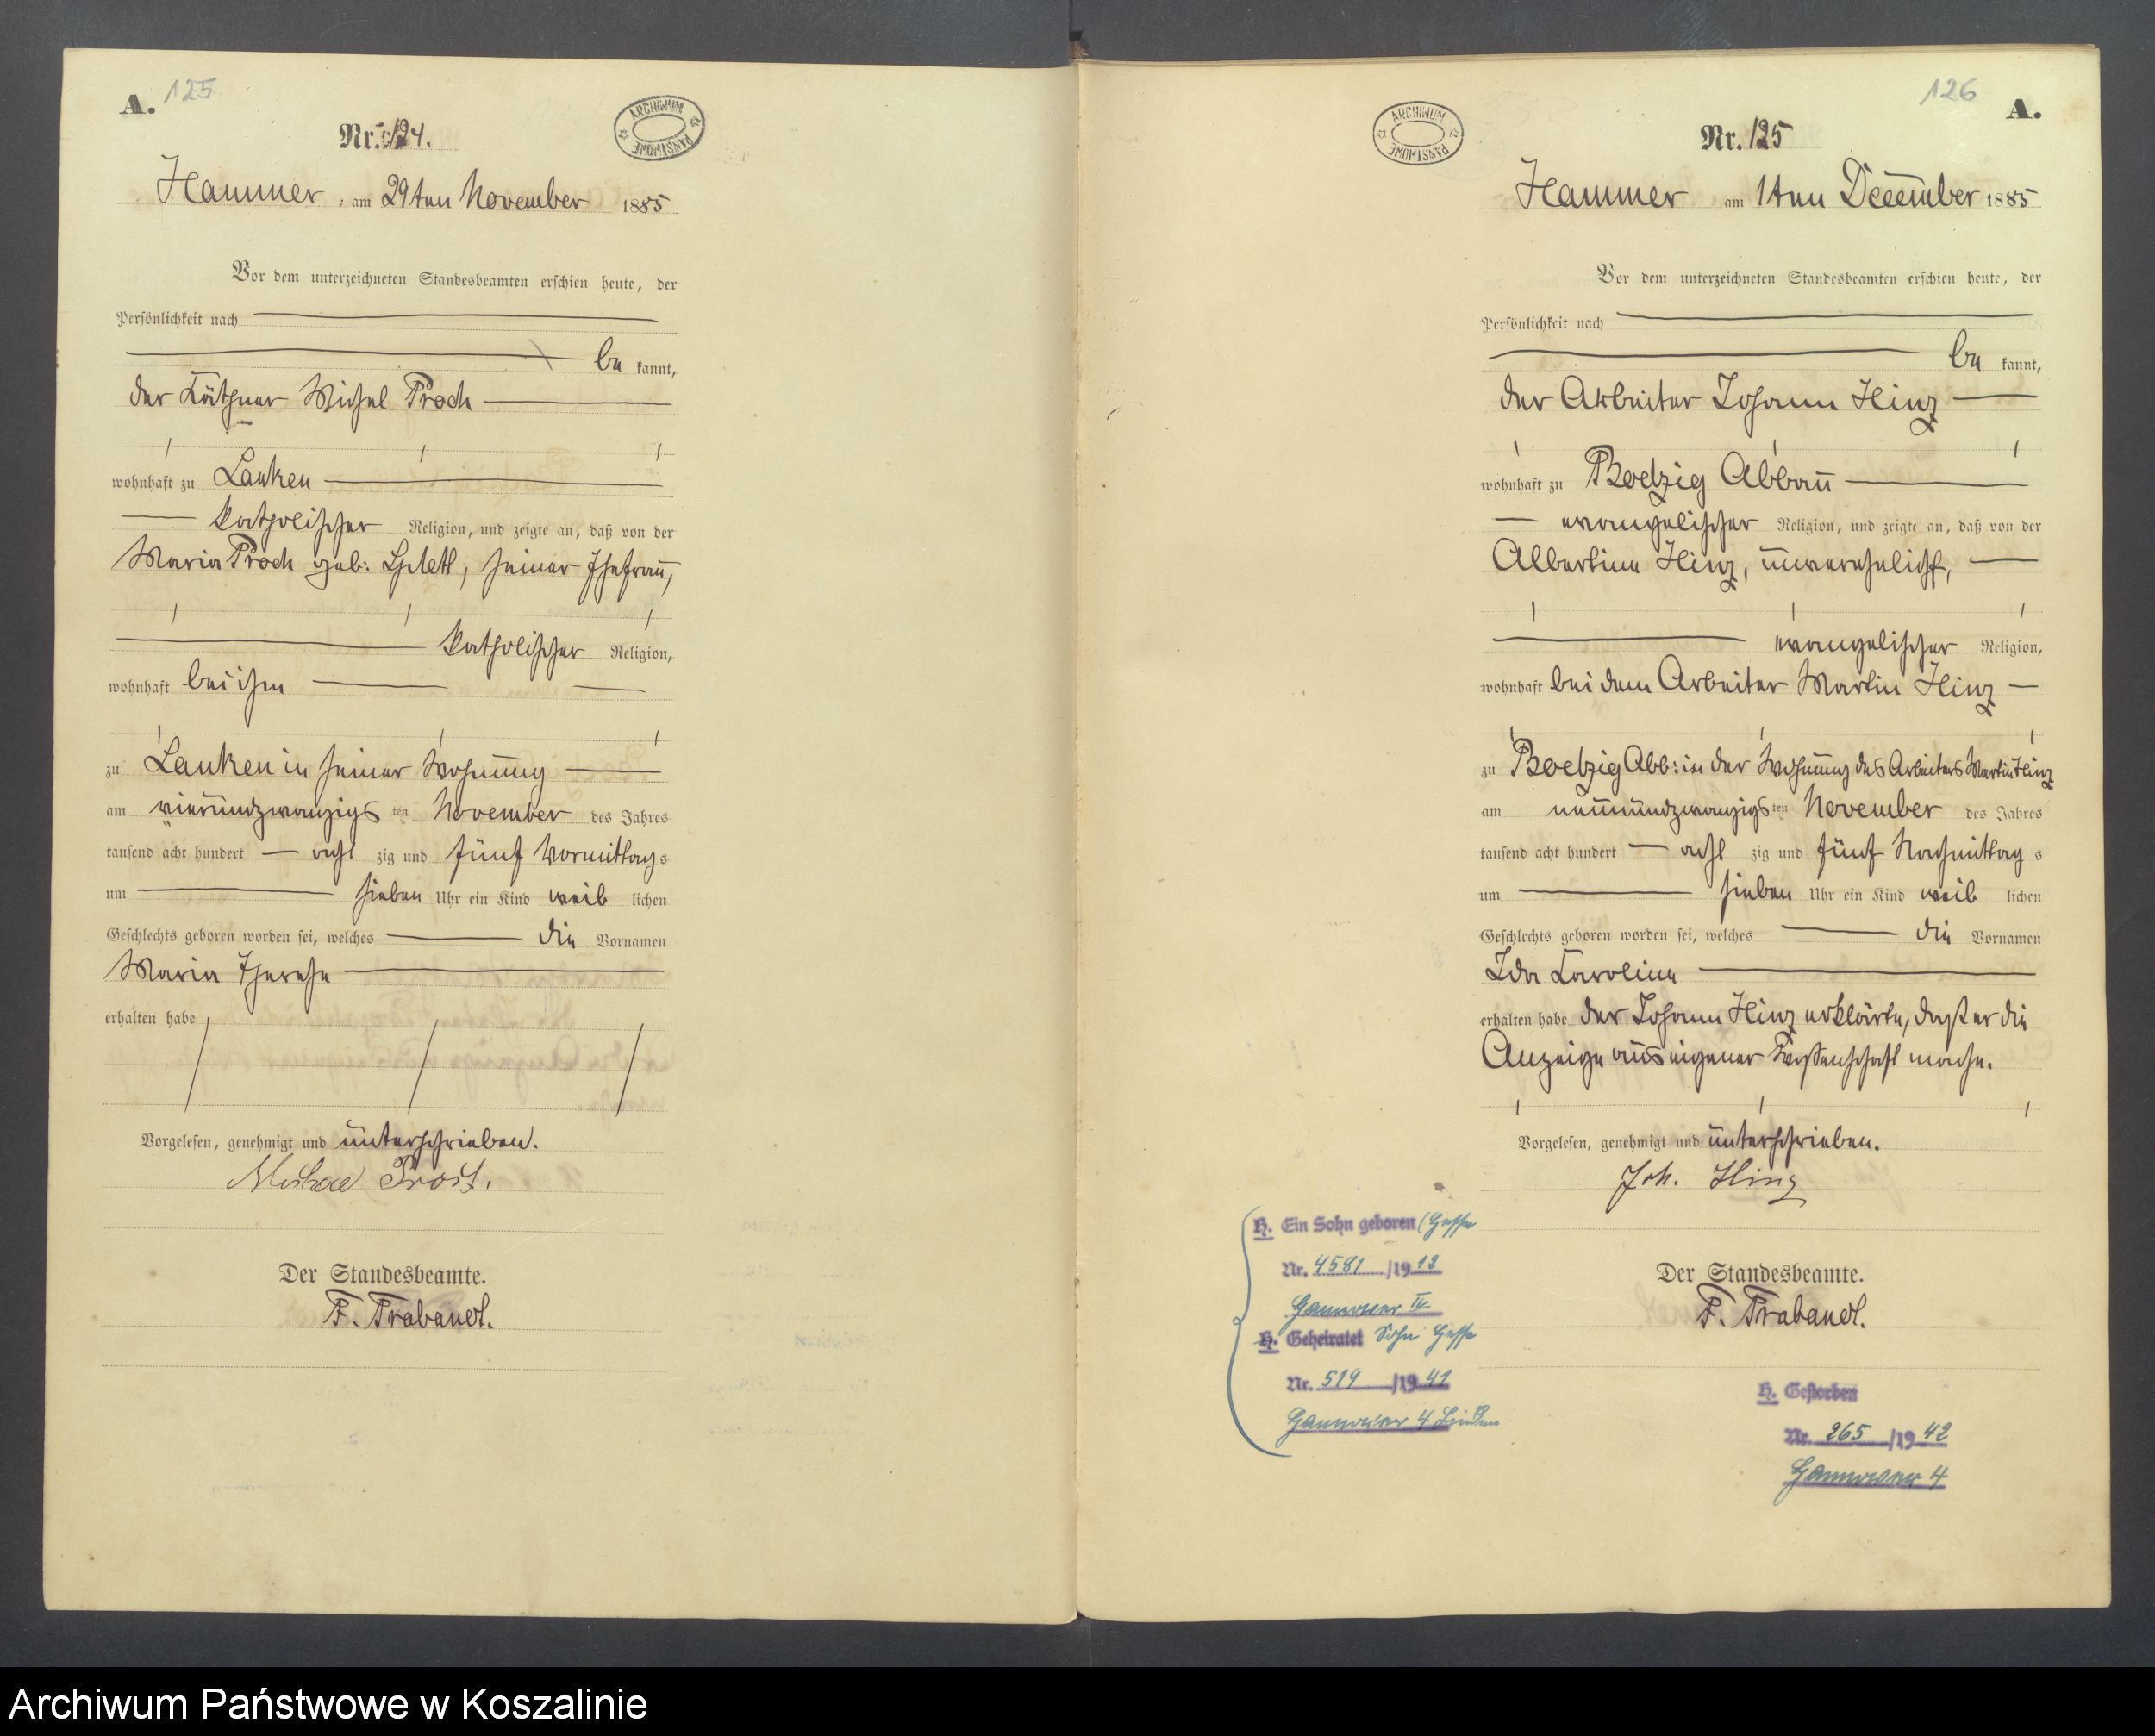 A. 125
ARCHIWUM PAŃSTWOWE
Nr. 124.
Hammer, am 29ten November 1885
Vor dem unterzeichneten Standesbeamten erschien heute, der
Persönlichkeit nach
be kannt,
der Käthner Michel Proch
wohnhaft zu Lanken
katholischer Religion, und zeigte an, daß von der
Maria Proch geb: , seiner Ehefrau,
katholischer Religion,
wohnhaft bei ihm
zu Lanken in seiner Wohnung
am vierundzwanzigs ten November des Jahres
tausend acht hundert acht zig und fünf Vormittag s
um sieben Uhr ein Kind weib lichen
Geschlechts geboren worden sei, welches die Vornamen
Maria Therese
erhalten habe
Vorgelesen, genehmigt und unterschrieben.
Der Standesbeamte.
F. Trabandt.
126 A.
ARCHIWUM PAŃSTWOWE
Nr. 125
Hammer am 1ten December 1885
Vor dem unterzeichneten Standesbeamten erschien heute, der
Persönlichkeit nach
be kannt,
der Arbeiter Johann Hinz
wohnhaft zu Boetzig Abbau
evangelischer Religion, und zeigte an, daß von der
Albertine Hinz, unverehelicht,
evangelischer Religion,
wohnhaft bei dem Arbeiter Martin Hinz
zu Boetzig Abb: in der Wohnung des Arbeiters Martin Hinz
am neunundzwanzigs ten November des Jahres
tausend acht hundert acht zig und fünf Nachmittag s
um sieben Uhr ein Kind weib lichen
Geschlechts geboren worden sei, welches die Vornamen
Ida Caroline
erhalten habe der Johann Hinz erklärte, daß er die
Anzeige aus eigener Wissenschaft mache.
Vorgelesen, genehmigt und unterschrieben.
Joh. Hinz
Der Standesbeamte.
F. Trabandt.
H. Ein Sohn geboren
Nr. 4581 /19 12
Hannover IV
H. Geheiratet Sohn
Nr. 519 /19 41
Hannover 4 Linden
H. Gestorben
Nr. 265 /19 42
Hannover 4
Archiwum Państwowe w Koszalinie